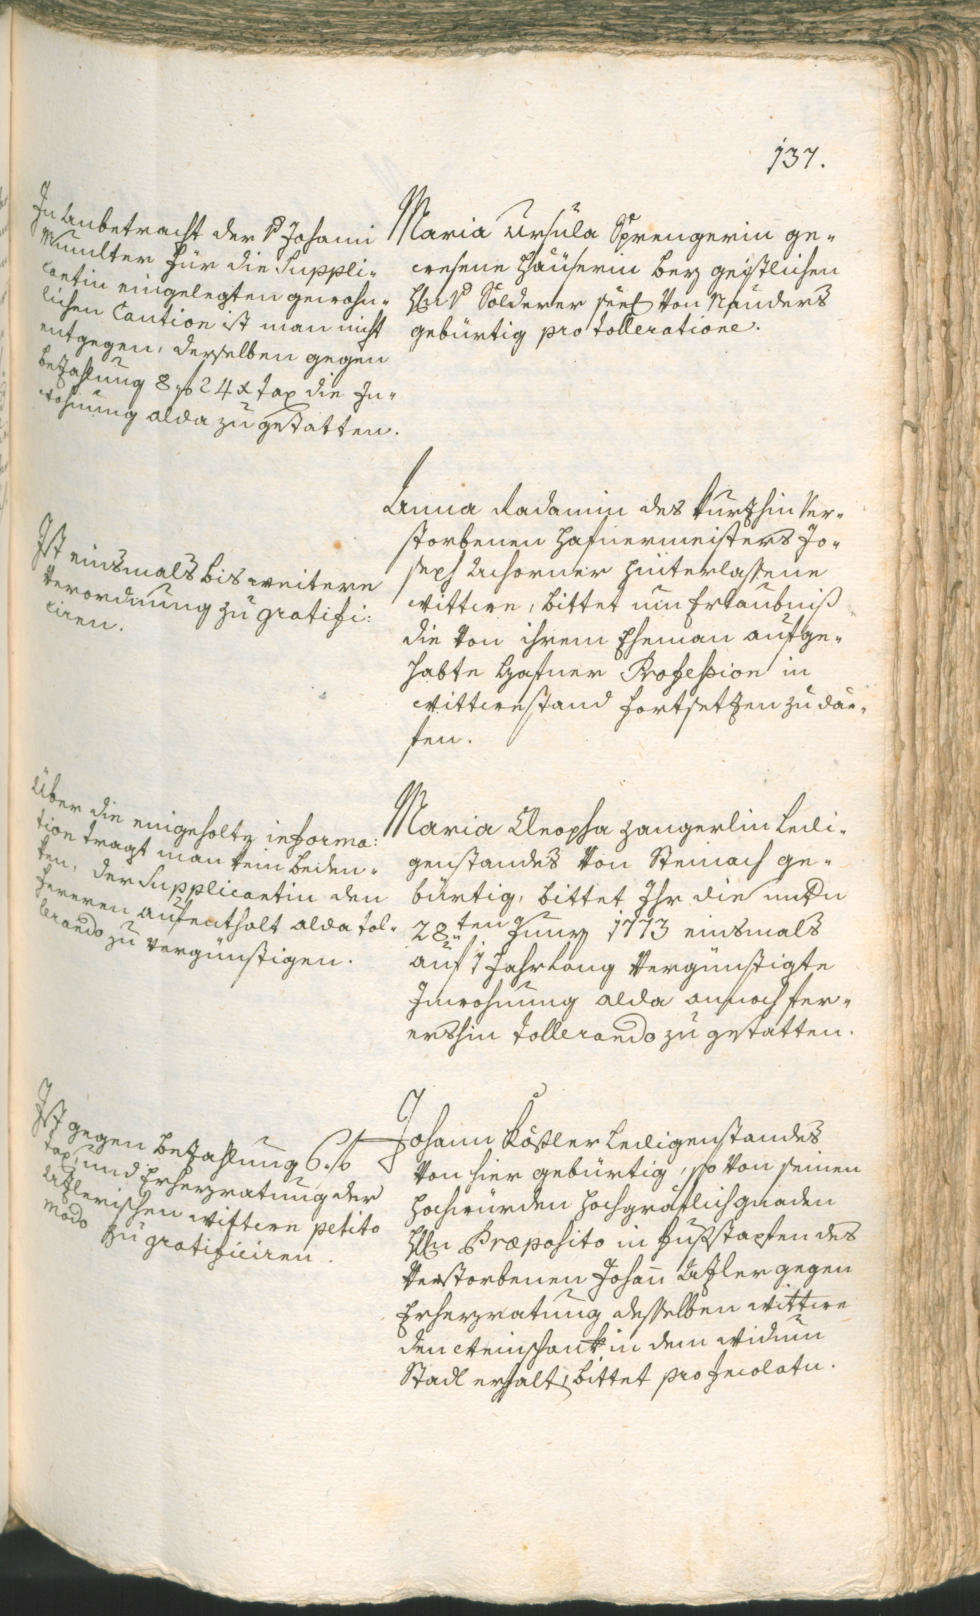 137.
In Anbetracht der P Johann
Munlter für die Suppli-
cantin eingelegten gewohn-
lichen Caution ist man nicht
entgegen, derselben gegen
bezahlung 8 fl 24 x tax die In-
wohnung alda zu gestatten.
Maria Ursula Sprengerin ge-
wesene Häuserin bey geistlichen
Hrn P Solderer seel. von Nauders
gebürtig pro tolleratione.
Ist einsmals bis weitere
Verordnung zu gratifi:
ciren.
Anna Radamin des kurzhin ver-
storbenen Hafnermeisters Jo-
seph Achorner hinterlassene
Wittwe, bittet um Erlaubniß
die von ihrem Eheman aufge-
habte Hafner Profession in
Wittwestand fortsetzen zu där-
fen.
Über die eingeholte informa:
tion tragt man kein beden-
ken, der Supplicantin den
ferneren aufenthalt alda tol-
lerando zu vergünstigen.
Maria Cleopha Zangerlin Ledi-
genstandes von Steinach ge-
bürtig, bittet Ihr die untern
28ten Juny 1773 einsmals
auf 1 Jahr lang vergünstigte
Inwohnung alda annoch fer-
ershin tollerando zu gestatten.
Ist gegen bezahlung 6 fl
tax, und Erheyratung der
Azlerischen Wittwe petito
modo zu gratificiren.
Johann Kößler Ledigenstandes
von hier gebürtig, so von seinen
Hochwürden Hochgräflich gnaden
Hrn Præposito in fußstapfen des
verstorbenen Johann Azler gegen
Erheyratung desselben Wittwe
den Weinschank in dem Widum
Stadl erhalt, bittet pro Incolatu.